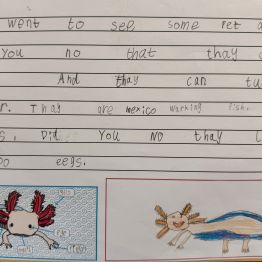 went to see some pet a
You no that thay
And thay can tu
r. Thay are mexico walking fish.
s, Did You No thay l
oo eegs.
gills
eye